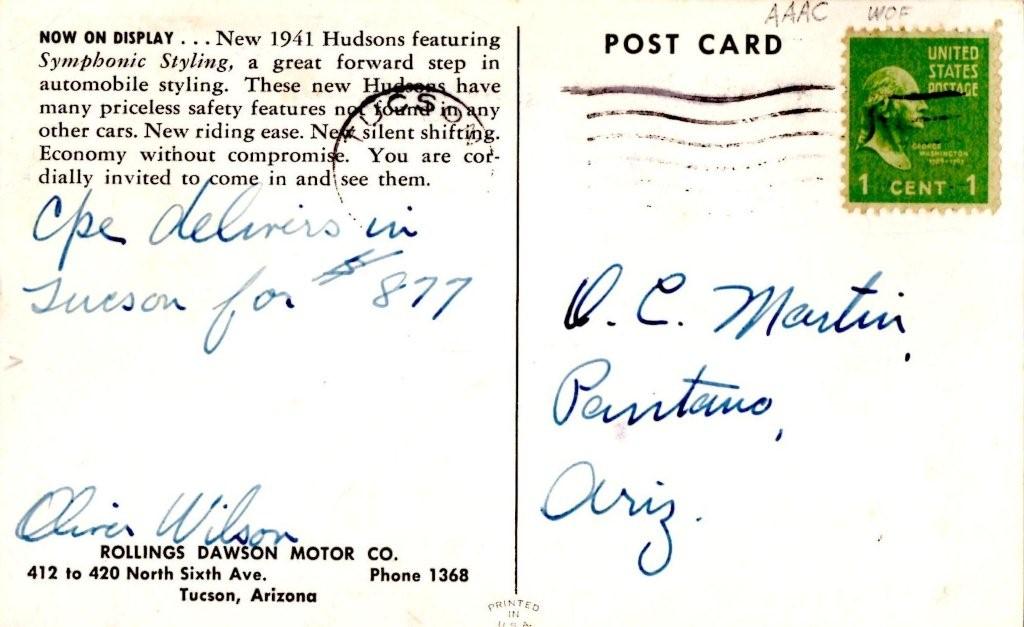 AAAC WOF
NOW ON DISPLAY . . . New 1941 Hudsons featuring
Symphonic Styling, a great forward step in
automobile styling. These new Hudsons have
many priceless safety features not found in any
other cars. New riding ease. New silent shifting.
Economy without compromise. You are cor-
dially invited to come in and see them.
TUCSON
Cpe delivers in
Tucson for $877
Oliver Wilson
ROLLINGS DAWSON MOTOR CO.
412 to 420 North Sixth Ave. Phone 1368
Tucson, Arizona
POST CARD
UNITED
STATES
POSTAGE
GEORGE
WASHINGTON
1789-1797
1 CENT 1
O. C. Martin,
Pantano,
Ariz.
PRINTED
IN
U.S.A.